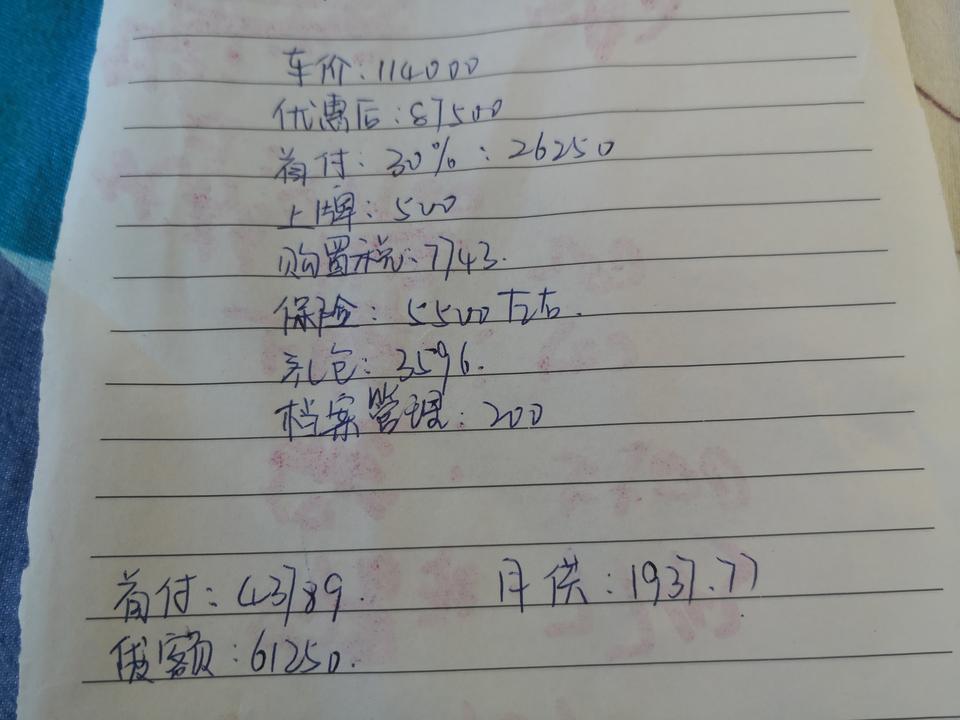 车价:114000
优惠后:87500
首付:30%:26250
上牌:500
购置税:7743.
保险:5500左右.
礼包:3596.
档案管理:200
首付:43789. 月供:1937.77
贷额:61250.